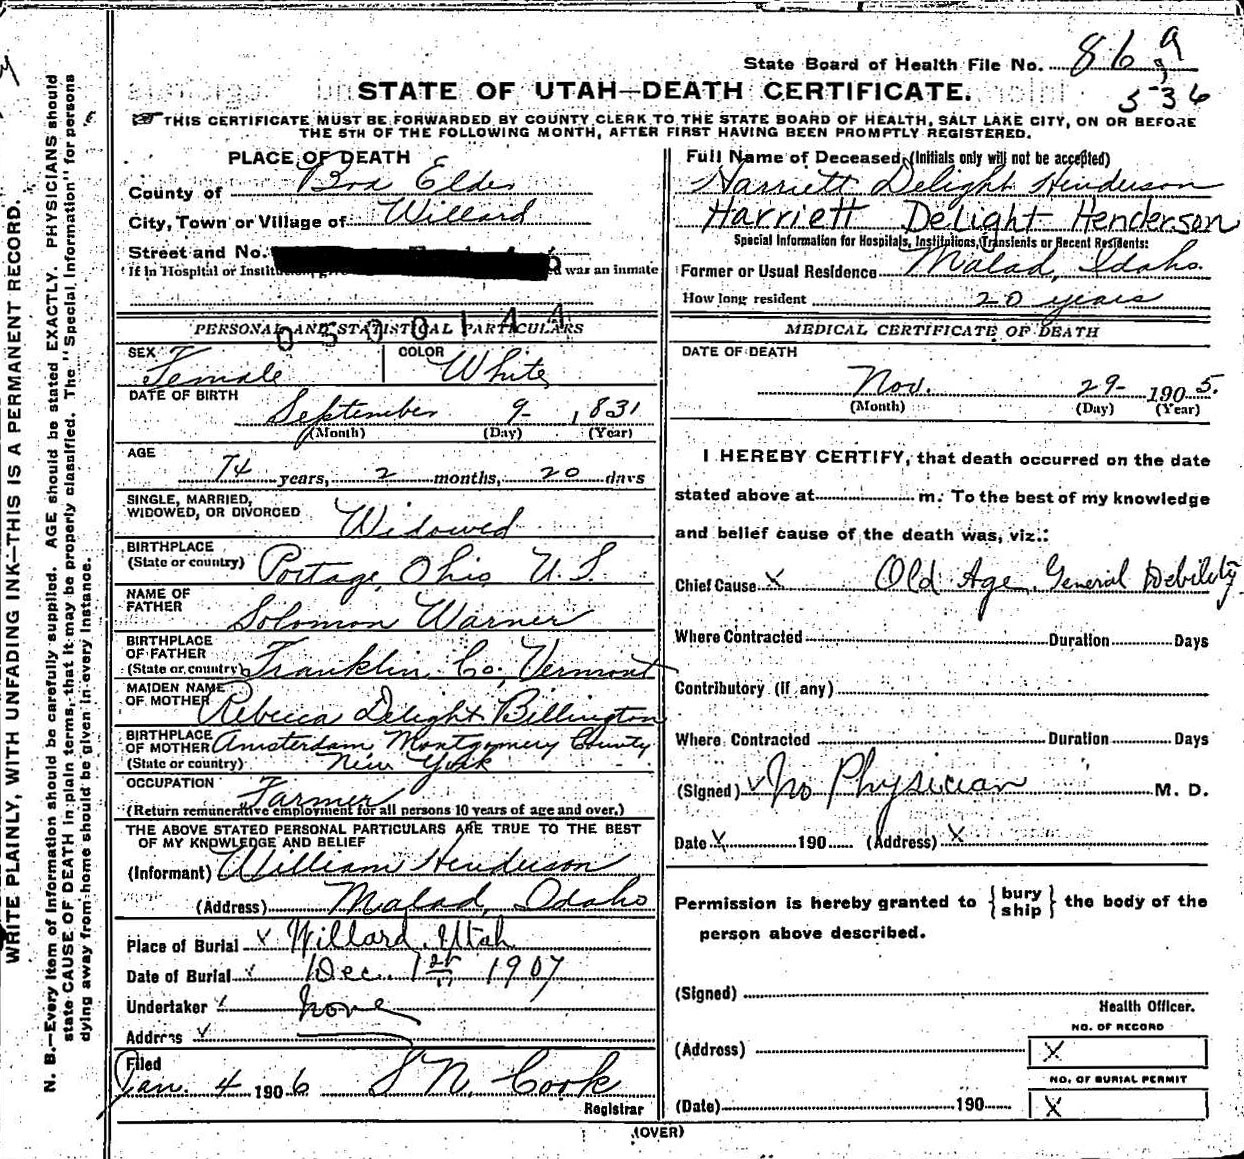 State Board of Health File No. 86 a
536
STATE OF UTAH—DEATH CERTIFICATE.
THIS CERTIFICATE MUST BE FORWARDED BY COUNTY CLERK TO THE STATE BOARD OF HEALTH, SALT LAKE CITY, ON OR BEFORE
THE 5TH OF THE FOLLOWING MONTH, AFTER FIRST HAVING BEEN PROMPTLY REGISTERED.
WRITE PLAINLY, WITH UNFADING INK—THIS IS A PERMANENT RECORD.
N. B.—Every item of information should be carefully supplied. AGE should be stated EXACTLY. PHYSICIANS should
state CAUSE OF DEATH in plain terms, that it may be properly classified. The "Special Information" for persons
dying away from home should be given in every instance.
PLACE OF DEATH
County of Box Elder
City, Town or Village of Willard
Street and No.
If in Hospital or was an inmate
0500144
PERSONAL AND STATISTICAL PARTICULARS
SEX Female COLOR White
DATE OF BIRTH
September 9- 1831
(Month) (Day) (Year)
AGE
74 years, 2 months, 20 days
SINGLE, MARRIED,
WIDOWED, OR DIVORCED Widowed
BIRTHPLACE
(State or country) Portage, Ohio U.S.
NAME OF
FATHER Solomon Warner
BIRTHPLACE
OF FATHER
(State or country) Franklin Co, Vermont
MAIDEN NAME
OF MOTHER Rebecca Delight Billington
BIRTHPLACE
OF MOTHER Amsterdam, Montgomery County
(State or country) New York
OCCUPATION Farmer
(Return remunerative employment for all persons 10 years of age and over.)
THE ABOVE STATED PERSONAL PARTICULARS ARE TRUE TO THE BEST
OF MY KNOWLEDGE AND BELIEF
(Informant) William Henderson
(Address) Malad, Idaho
Place of Burial x Willard, Utah
Date of Burial Dec. 1st 1907
Undertaker none
Address
Filed
Jan. 4 1906 S N Cook
Registrar
Full Name of Deceased (Initials only will not be accepted)
Harriett Delight Henderson
Harriett Delight Henderson
Special Information for Hospitals, Institutions, Transients or Recent Residents:
Former or Usual Residence Malad, Idaho.
How long resident 20 years
MEDICAL CERTIFICATE OF DEATH
DATE OF DEATH
Nov. 29- 1905.
(Month) (Day) (Year)
I HEREBY CERTIFY, that death occurred on the date
stated above at m. To the best of my knowledge
and belief cause of the death was, viz.:
Chief Cause x Old Age, General Debility
Where Contracted Duration Days
Contributory (if any)
Where Contracted Duration Days
(Signed) No Physician M. D.
Date x 190 (Address) x
Permission is hereby granted to { bury ship } the body of the
person above described.
(Signed)
Health Officer.
NO. OF RECORD
(Address) X
NO. OF BURIAL PERMIT
(Date) 190 X
(OVER)